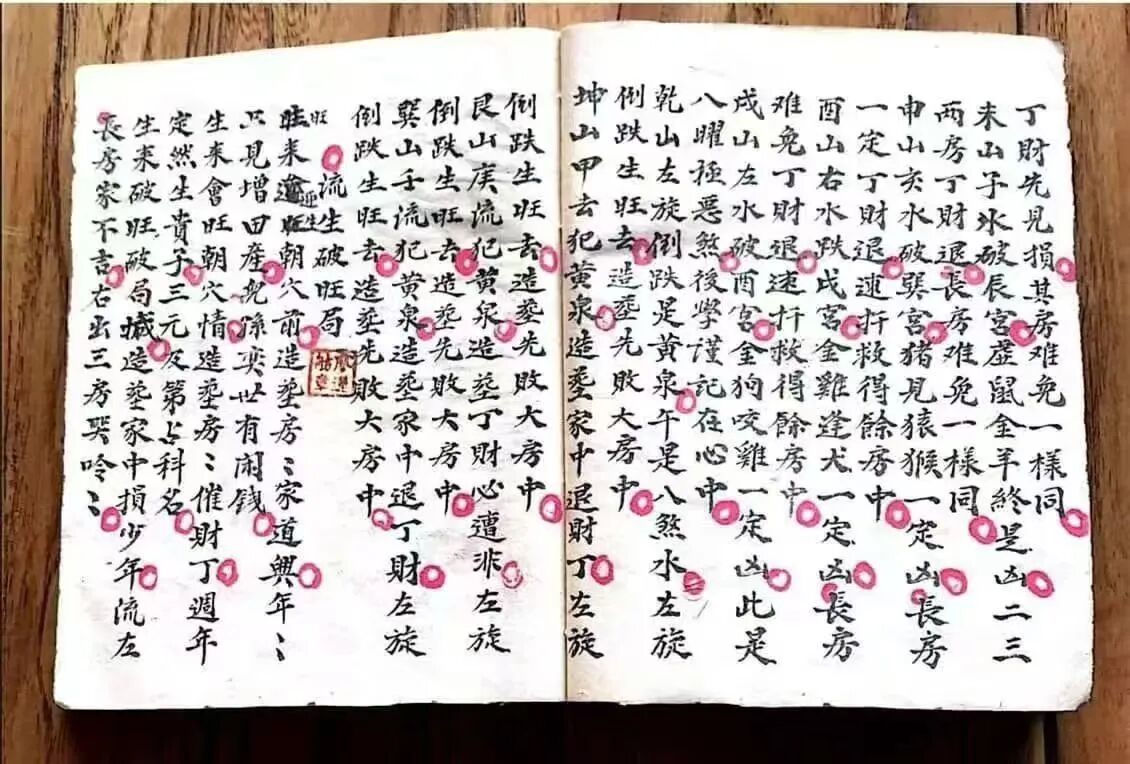 丁財先見損其房难免一樣同
未山子水破辰宮虚鼠金羊終是凶二三
两房丁財退長房难免一樣同
申山亥水破巽宮猪見猿猴一定凶長房
一定丁財退速扦救得餘房中
酉山右水跌戌宮金雞逢犬一定凶長房
难免丁財退速扦救得餘房中
戌山左水破酉宮金狗咬雞一定凶此是
八曜極惡煞後學謹記在心中
乾山左旋倒跌是黄泉午是八煞水左旋
倒跌生旺去造塟先敗大房中
坤山甲去犯黄泉造塟家中退財丁左旋
倒跌生旺去造塟先敗大房中
艮山庚流犯黄泉造塟丁財必遭非左旋
倒跌生旺去造塟先敗大房中
巽山壬流犯黄泉造塟家中退丁財左旋
倒跌生旺去造塟先敗大房中
旺流生破旺局
来迎生旺朝穴前造塟房〻家道興年〻
只見增田產兒孫奕世有闲錢
生来會旺朝穴情造塟房〻催財丁週年
定然生貴子三元及第占科名
生来破旺破局城造塟家中損少年流左
長房家不吉右出三房哭吟〻